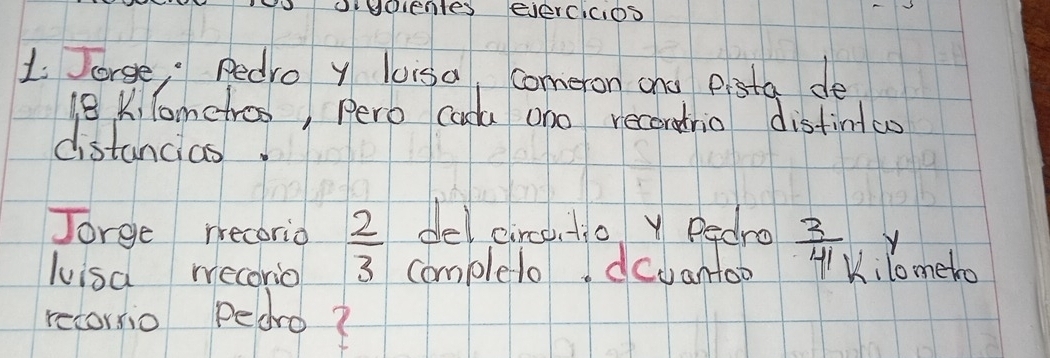 los siguientes ejercicios
1: Jorge, Pedro y luisa comeron una pista de
18 Kilometros, Pero cada uno recorrio distintas
distancias.
Jorge rrecorio 2/3 del circuitio y Pedro 3/4 y
luisa rrecorio completo. ¿cuantoo Kilometro
recorrio Pedro?